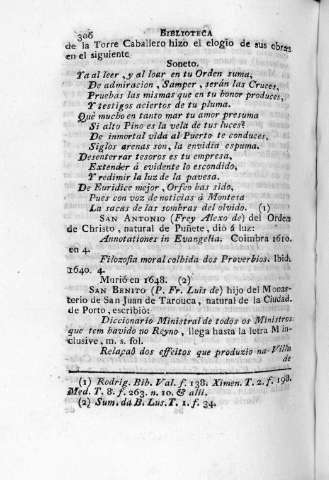 306 BIBLIOTECA
de la Torre Caballero hizo el elogio de sus obras
en el siguiente
Soneto.
Ya al leer, y al loar en tu Orden suma,
De admiracion, Samper, serán las Cruces,
Pruebas las mismas que en tu honor produces,
Y testigos aciertos de tu pluma.
Qué mucho en tanto mar tu amor presuma
Si alto Pino es la vela de tus luces?
De inmortal vida al Puerto te conduces,
Siglos arenas son, la envidia espuma.
Desenterrar tesoros es tu empresa,
Extender á evidente lo escondido,
Y redimir la luz de la pavesa.
De Euridice mejor, Orfeo has sido,
Pues con voz de noticias á Montesa
La sacas de las sombras del olvido. (1)
SAN ANTONIO (Frey Alexo de) del Orden
de Christo, natural de Puñete, dió á luz:
Annotationes in Evangelia. Coimbra 1610.
en 4.
Filozofia moral colhida dos Proverbios. Ibid.
1640. 4.
Murió en 1648. (2)
SAN BENITO (P. Fr. Luis de) hijo del Monas-
terio de San Juan de Tarouca, natural de la Ciudad
de Porto, escribió:
Diccionario Ministral de todos os Ministros
que tem havido no Reyno, llega hasta la letra M in-
clusive, m. s. fol.
Relaçaõ dos effeitos que produzio na Villa
de
(1) Rodrig. Bib. Val. f. 138. Ximen. T. 2. f. 198.
Med. T. 8. f. 263. n. 10. & alii.
(2) Sum. da B. Lus. T. 1. f. 34.